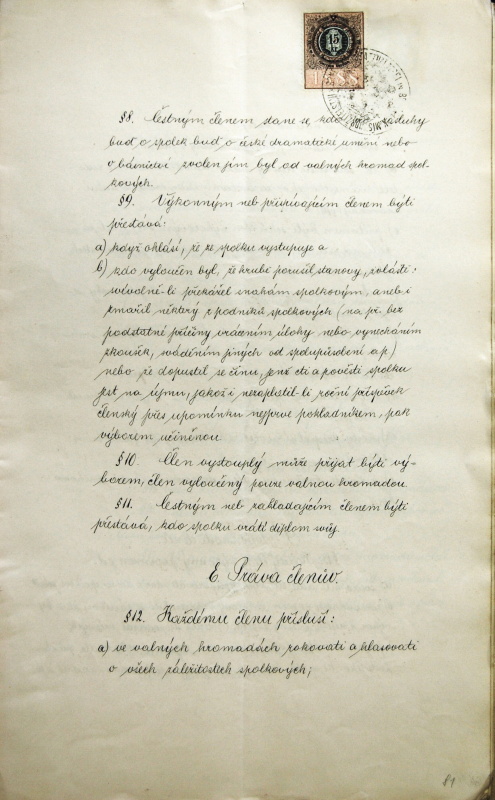 15
§8. Čestným členem stane se, kdo zásluhy
buď o spolek buď o české dramatické umění nebo
o básnictví zvolen jím byl od valných hromad spol-
kových.
§9. Výkonným neb přispívajícím členem býti
přestává:
a) když ohlásí, že ze spolku vystupuje a
b) kdo vyloučen byl, že hrubě porušil stanovy, zvláště:
svévolně-li překážel snahám spolkovým, aneb i
zmařil některý z podniků spolkových (na př. bez
podstatné příčiny vrácením úlohy nebo vynecháním
zkoušek, sváděním jiných od spolupůsobení a p.)
nebo že dopustil se činu, jenž cti a pověsti spolku
jest na újmu, jakož i nezaplatil-li roční příspěvek
členský přes upomínku nejprve pokladníkem, pak
výborem učiněnou.
§10. Člen vystouplý může přijat býti vý-
borem, člen vyloučený pouze valnou hromadou.
§11. Čestným neb zakladajícím členem býti
přestává, kdo spolku vrátí diplom svůj.
E. Práva členův.
§12. Každému členu přísluší:
a) ve valných hromadách rokovati a hlasovati
o všech záležitostech spolkových;
81